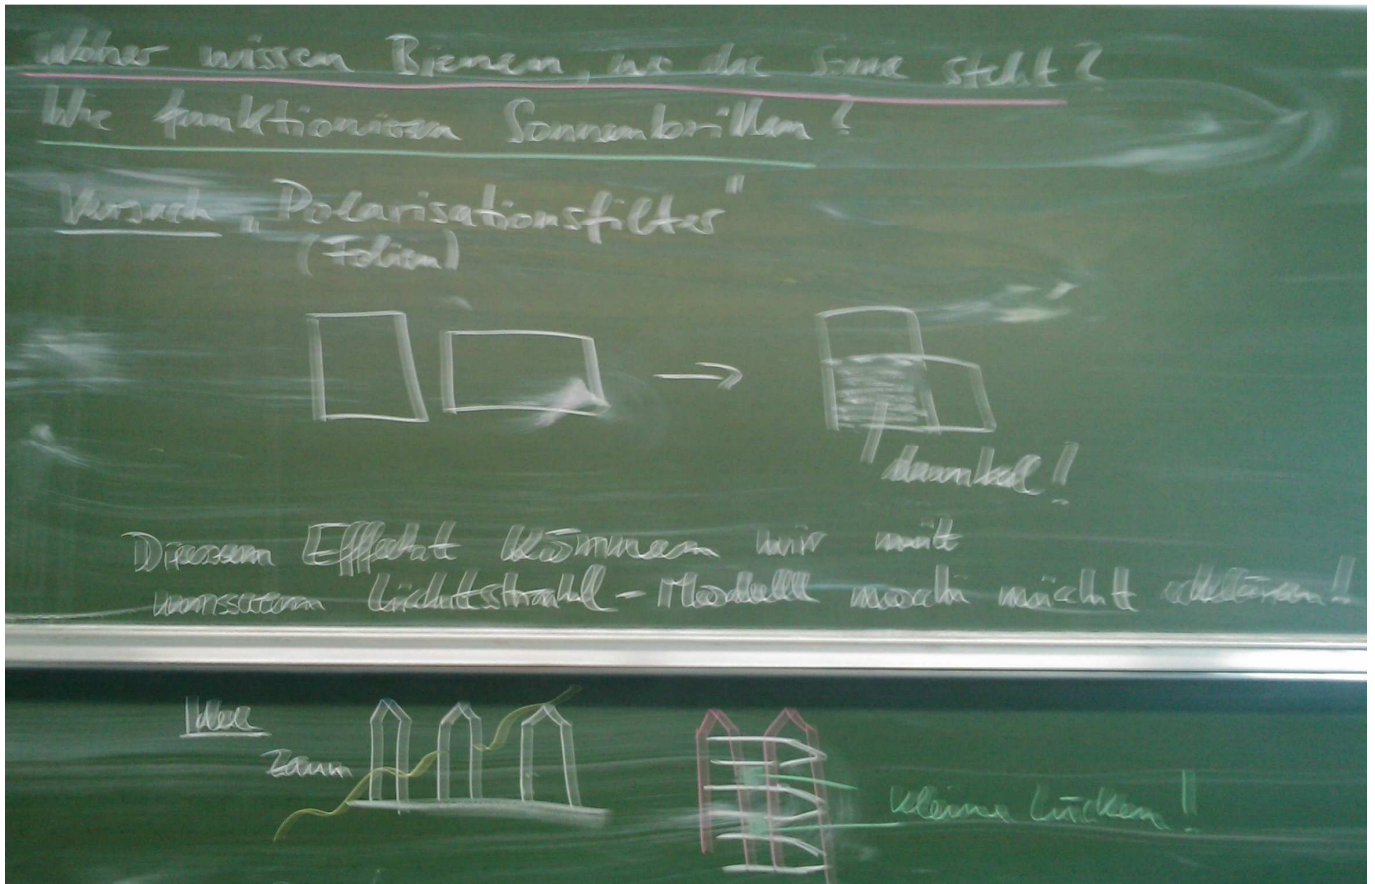 Woher wissen Bienen, wo die Sonne steht?
Wie funktionieren Sonnenbrillen?
Versuch „Polarisationsfilter"
(Folien)
dunkel!
Diesen Effekt können wir mit
unserem Lichtstrahl-Modell noch nicht erklären!
Idee
Zaun
kleine Lücken!